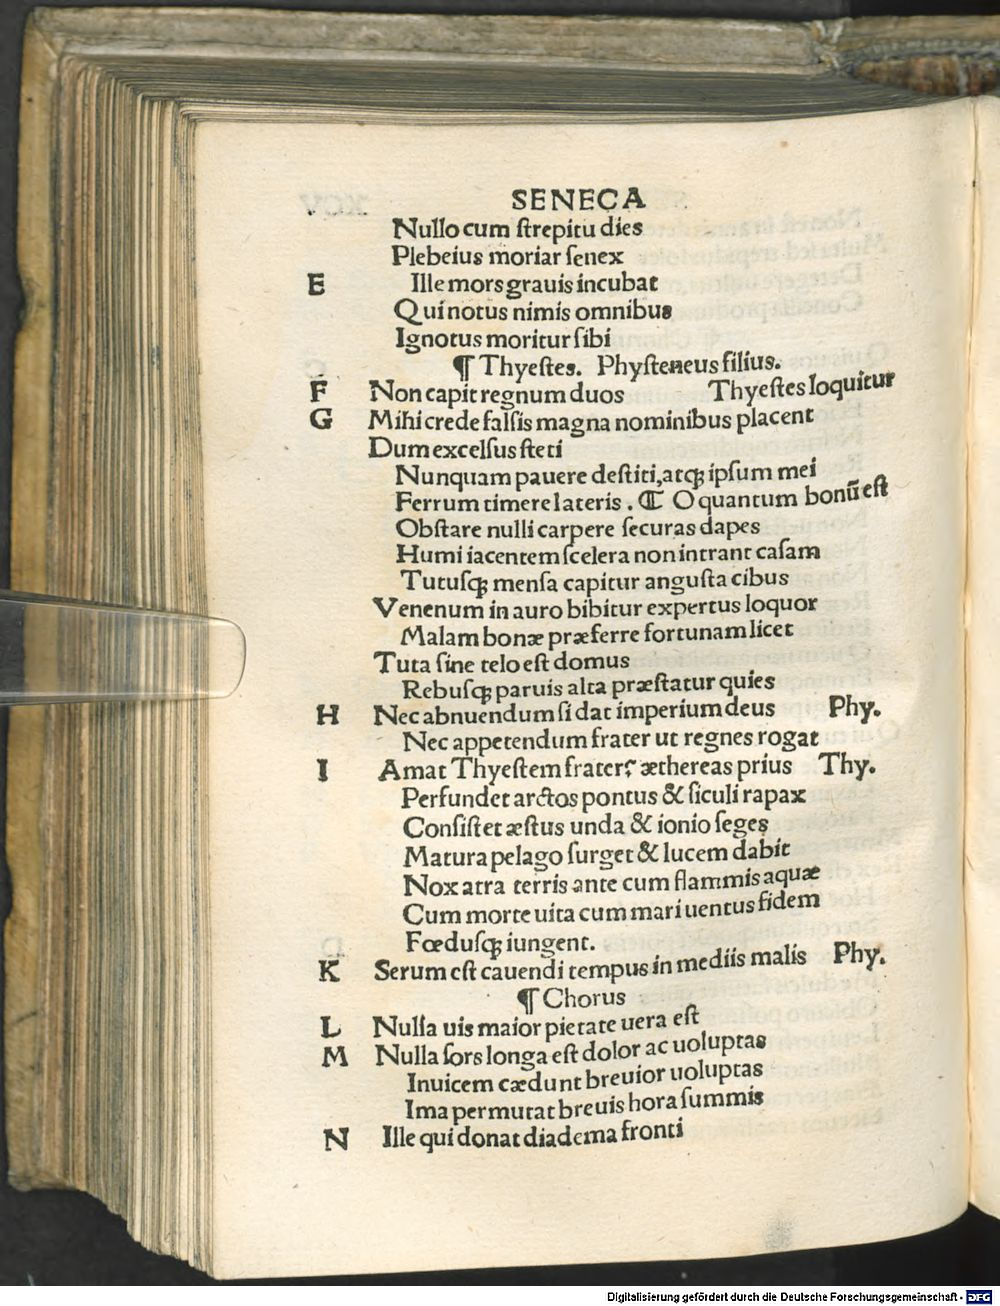 SENECA
Nullo cum ſtrepitu dies
Plebeius moriar ſenex
E Ille mors grauis incubat
Qui notus nimis omnibus
Ignotus moritur ſibi
¶ Thyeſtes. Phyſteneus filius.
F Non capit regnum duos Thyeſtes loquitur
G Mihi crede falſis magna nominibus placent
Dum excelſus ſteti
Nunquam pauere deſtiti, atqꝫ ipſum mei
Ferrum timere lateris. ¶ O quantum bonū eſt
Obſtare nulli carpere ſecuras dapes
Humi iacentem ſcelera non intrant caſam
Tutuſqꝫ menſa capitur anguſta cibus
Venenum in auro bibitur expertus loquor
Malam bonæ præferre fortunam licet
Tuta ſine telo eſt domus
Rebuſqꝫ paruis alta præſtatur quies
H Nec abnuendum ſi dat imperium deus Phy.
Nec appetendum frater ut regnes rogat
I Amat Thyeſtem frater? æthereas prius Thy.
Perfundet arctos pontus & ſiculi rapax
Conſiſtet æſtus unda & ionio ſeges
Matura pelago ſurget & lucem dabit
Nox atra terris ante cum flammis aquæ
Cum morte uita cum mari uentus fidem
Fœduſqꝫ iungent.
K Serum eſt cauendi tempus in mediis malis Phy.
¶ Chorus
L Nulla uis maior pietate uera eſt
M Nulla ſors longa eſt dolor ac uoluptas
Inuicem cædunt breuior uoluptas
Ima permutat breuis hora ſummis
N Ille qui donat diadema fronti
Digitalisierung gefördert durch die Deutsche Forschungsgemeinschaft - DFG